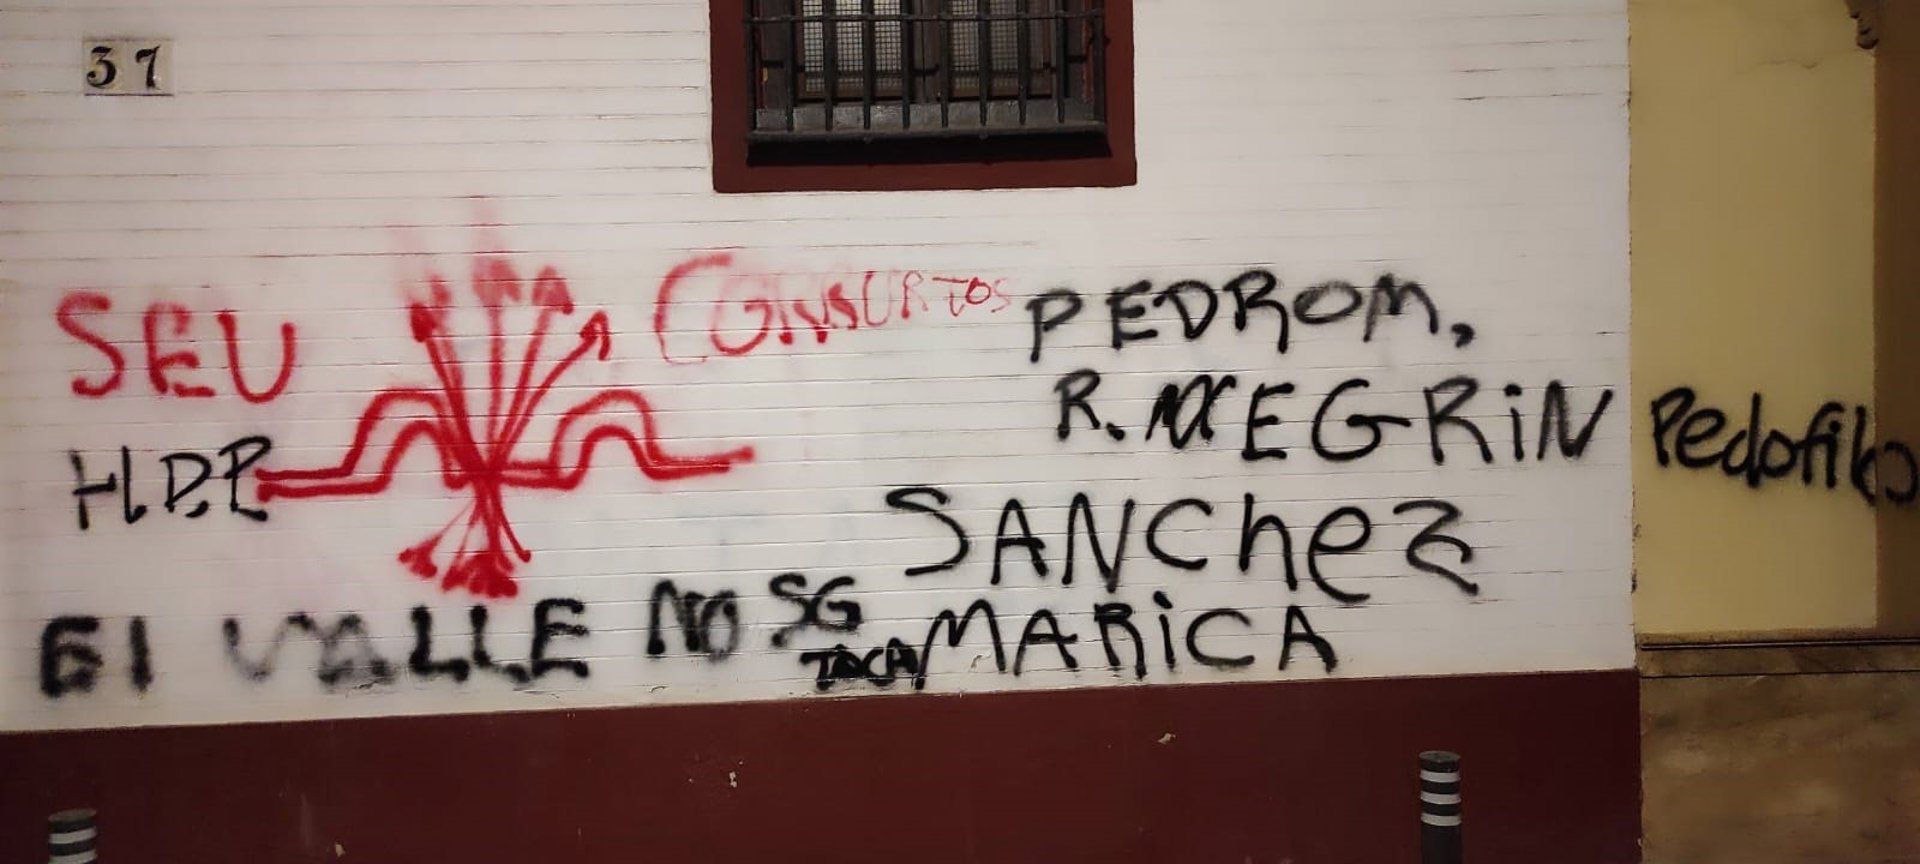 37
SEU
CONSURTOS
PEDROM,
R. NEGRiN
Pedofilo
HDP
SANCheZ
El VALLE NO SG TOCA
MARiCA